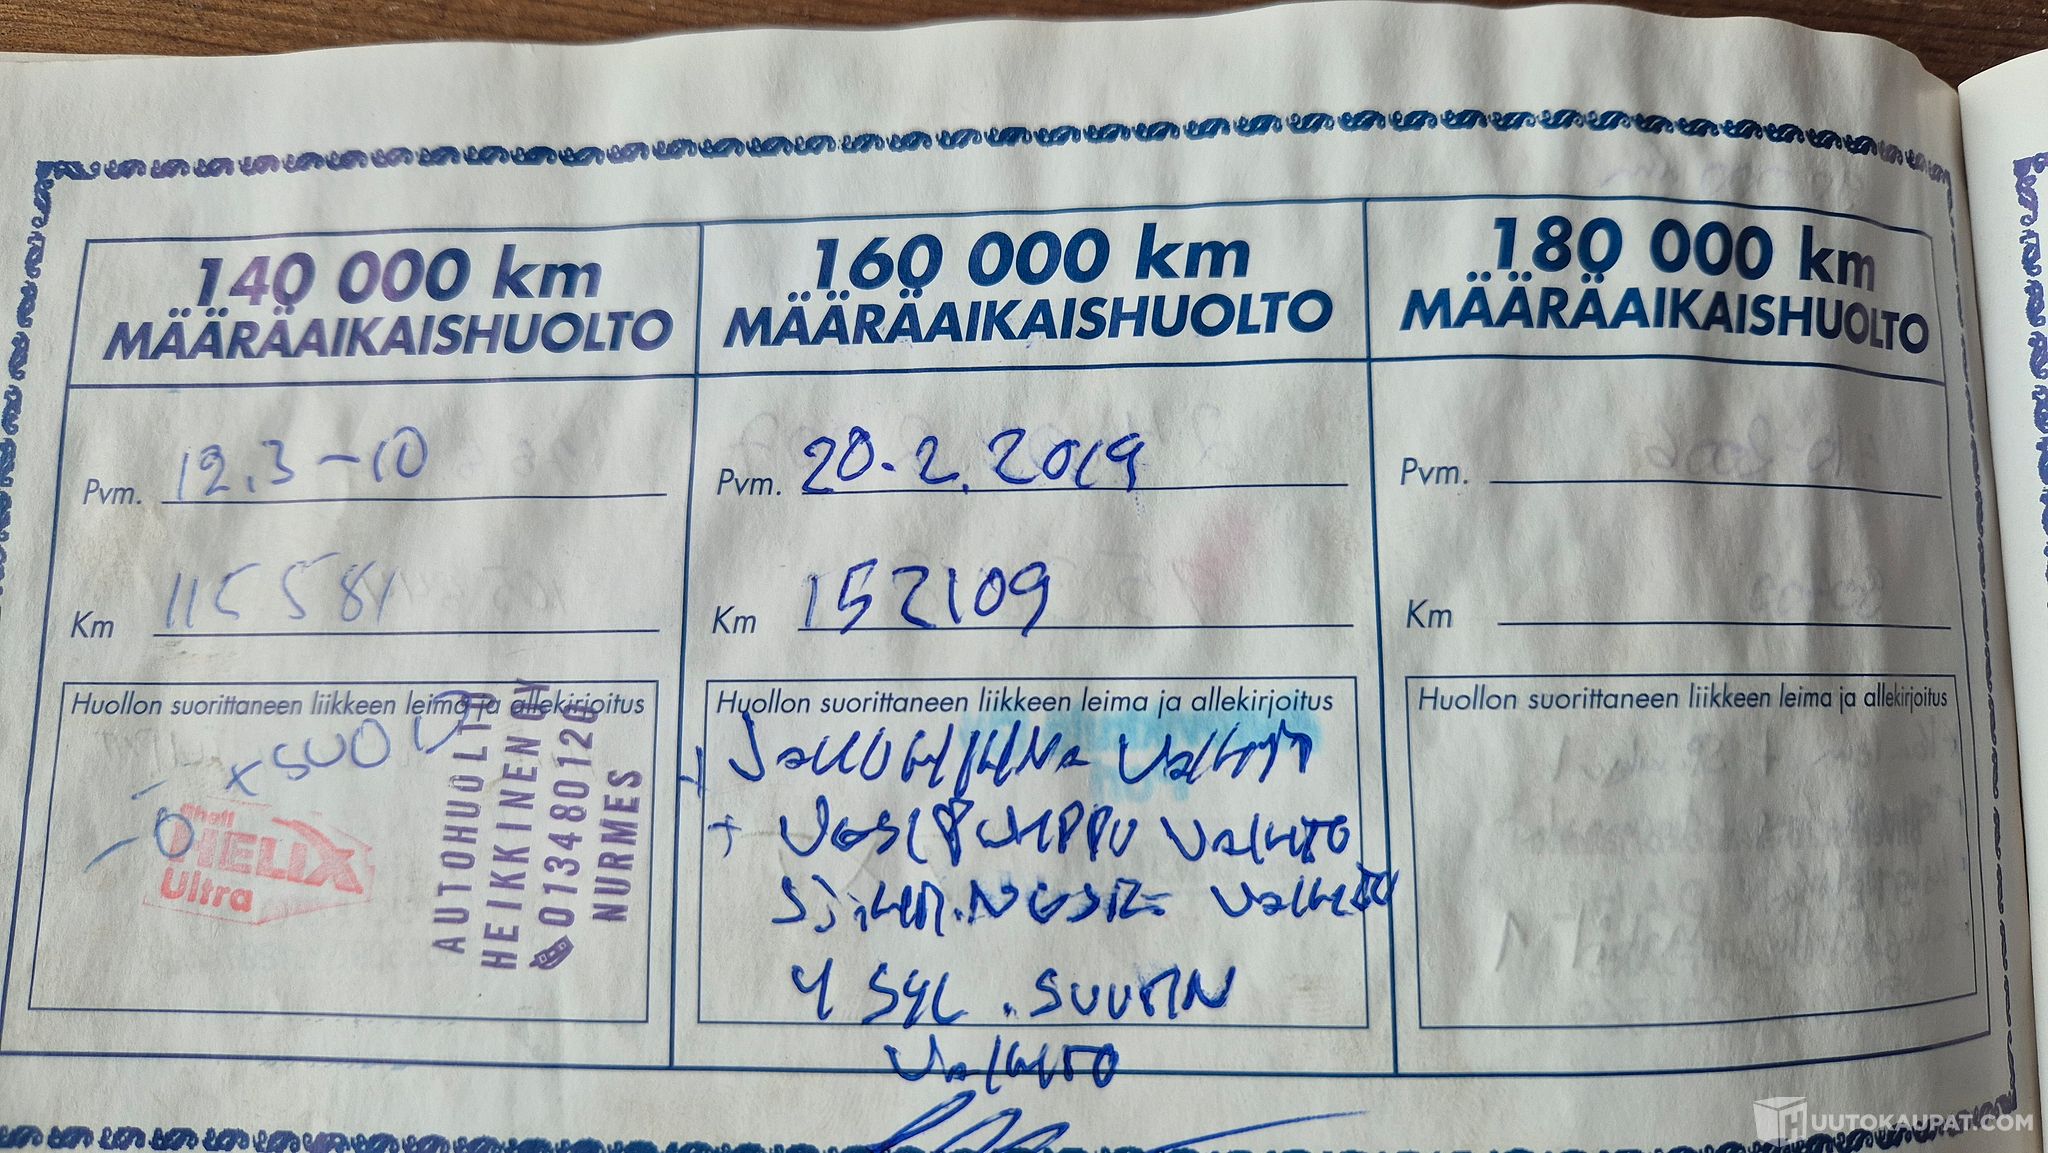 140 000 km
MÄÄRÄAIKAISHUOLTO
Pvm. 12.3-10
Km 115581
Huollon suorittaneen liikkeen leima ja allekirjoitus
Shell
HELIX
Ultra
AUTOHUOLTO
HEIKKINEN OY
013480120
NURMES
160 000 km
MÄÄRÄAIKAISHUOLTO
Pvm. 20.2.2019
Km 152109
Huollon suorittaneen liikkeen leima ja allekirjoitus
+ JAKOHIHNA
+ VESIPUMPPU VAIHTO
VAIHTO
4 SYL. SUUTIN
VAIHTO
180 000 km
MÄÄRÄAIKAISHUOLTO
Pvm.
Km
Huollon suorittaneen liikkeen leima ja allekirjoitus
HUUTOKAUPAT.COM